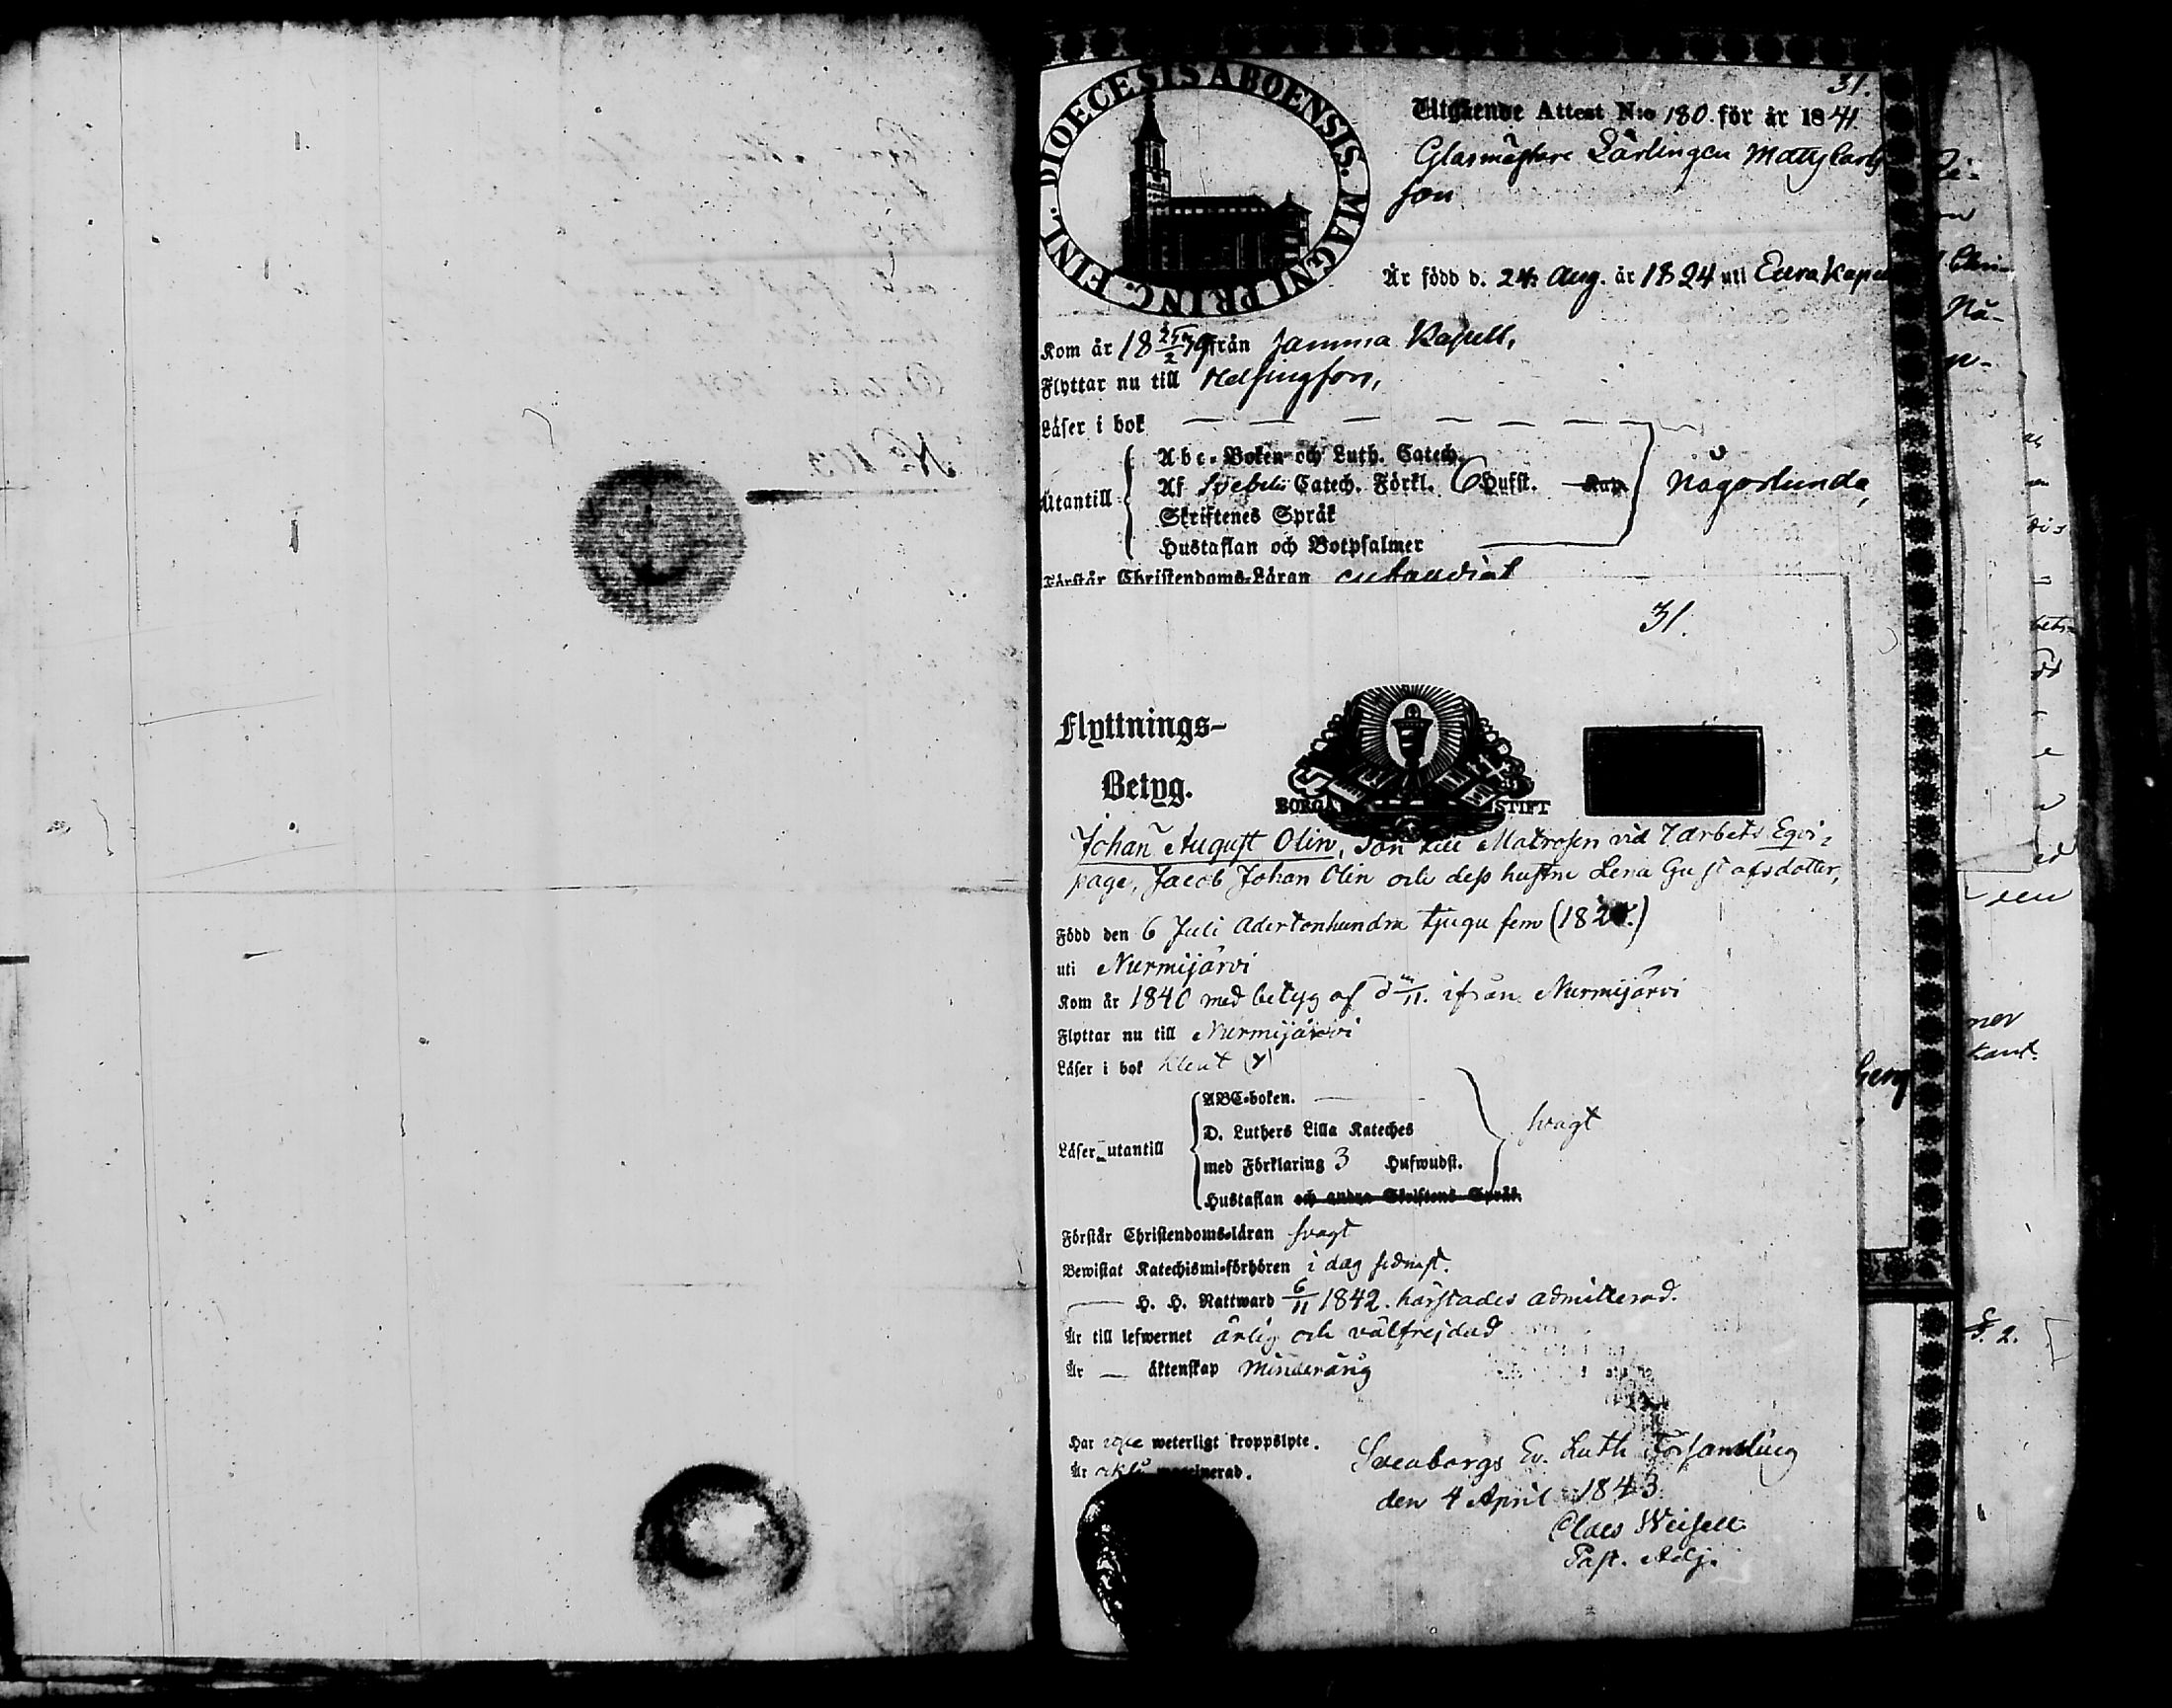 31.
DIOECESIS ABOENSIS. MAGNI PRINC. FINL.
Utgående Attest N:o 180. för år 1841.
Glasmästare Lärlingen Matts Carls
son
Är född d. 24 Aug. år 1824 uti Eura Kapell
Kom år 18 från samma Kapell,
Flyttar nu till Helsingfors,
Läser i bok — — — — — —
Utantill
Abc-Boken och Luth. Catech.
Af Svebelii Catech. Förkl. 6 Hufst.
Skriftenes Språk
Hustaflan och Botpsalmer
någorlunda,
Förstår Christendoms-Läran enahanda
31.
Flyttnings-
Betyg.
BORGÅ STIFT
Johan August Olin, Son till Matrosen vid 7 Arbets Eqvi-
page, Jacob Johan Olin och dess hustru Lena Gustafsdotter,
Född den 6 Juli Adertonhundra tjugu fem (182 .)
uti Nurmijärvi
Kom år 1840 med betyg af d /11. ifrån Nurmijärvi
Flyttar nu till Nurmijärvi
Läser i bok klent
Läser utantill
ABC-boken. —
D. Luthers Lilla Kateches
med Förklaring 3 Hufwudst.
Hustaflan och andra Skriftens Språk.
svagt
Förstår Christendoms-läran svagt
Bewistat Katechismi-förhören i dag sednast.
— H. H. Nattward 6/11 1842. härstädes admitterad.
Är till lefwernet ärlig och välfrejdad
Är — äktenskap Minderårig
Har weterligt kroppslyte.
Är
Sveaborgs Ev. Luth Församling
den 4 April 1843.
Claes Weisell
Past. Adj.